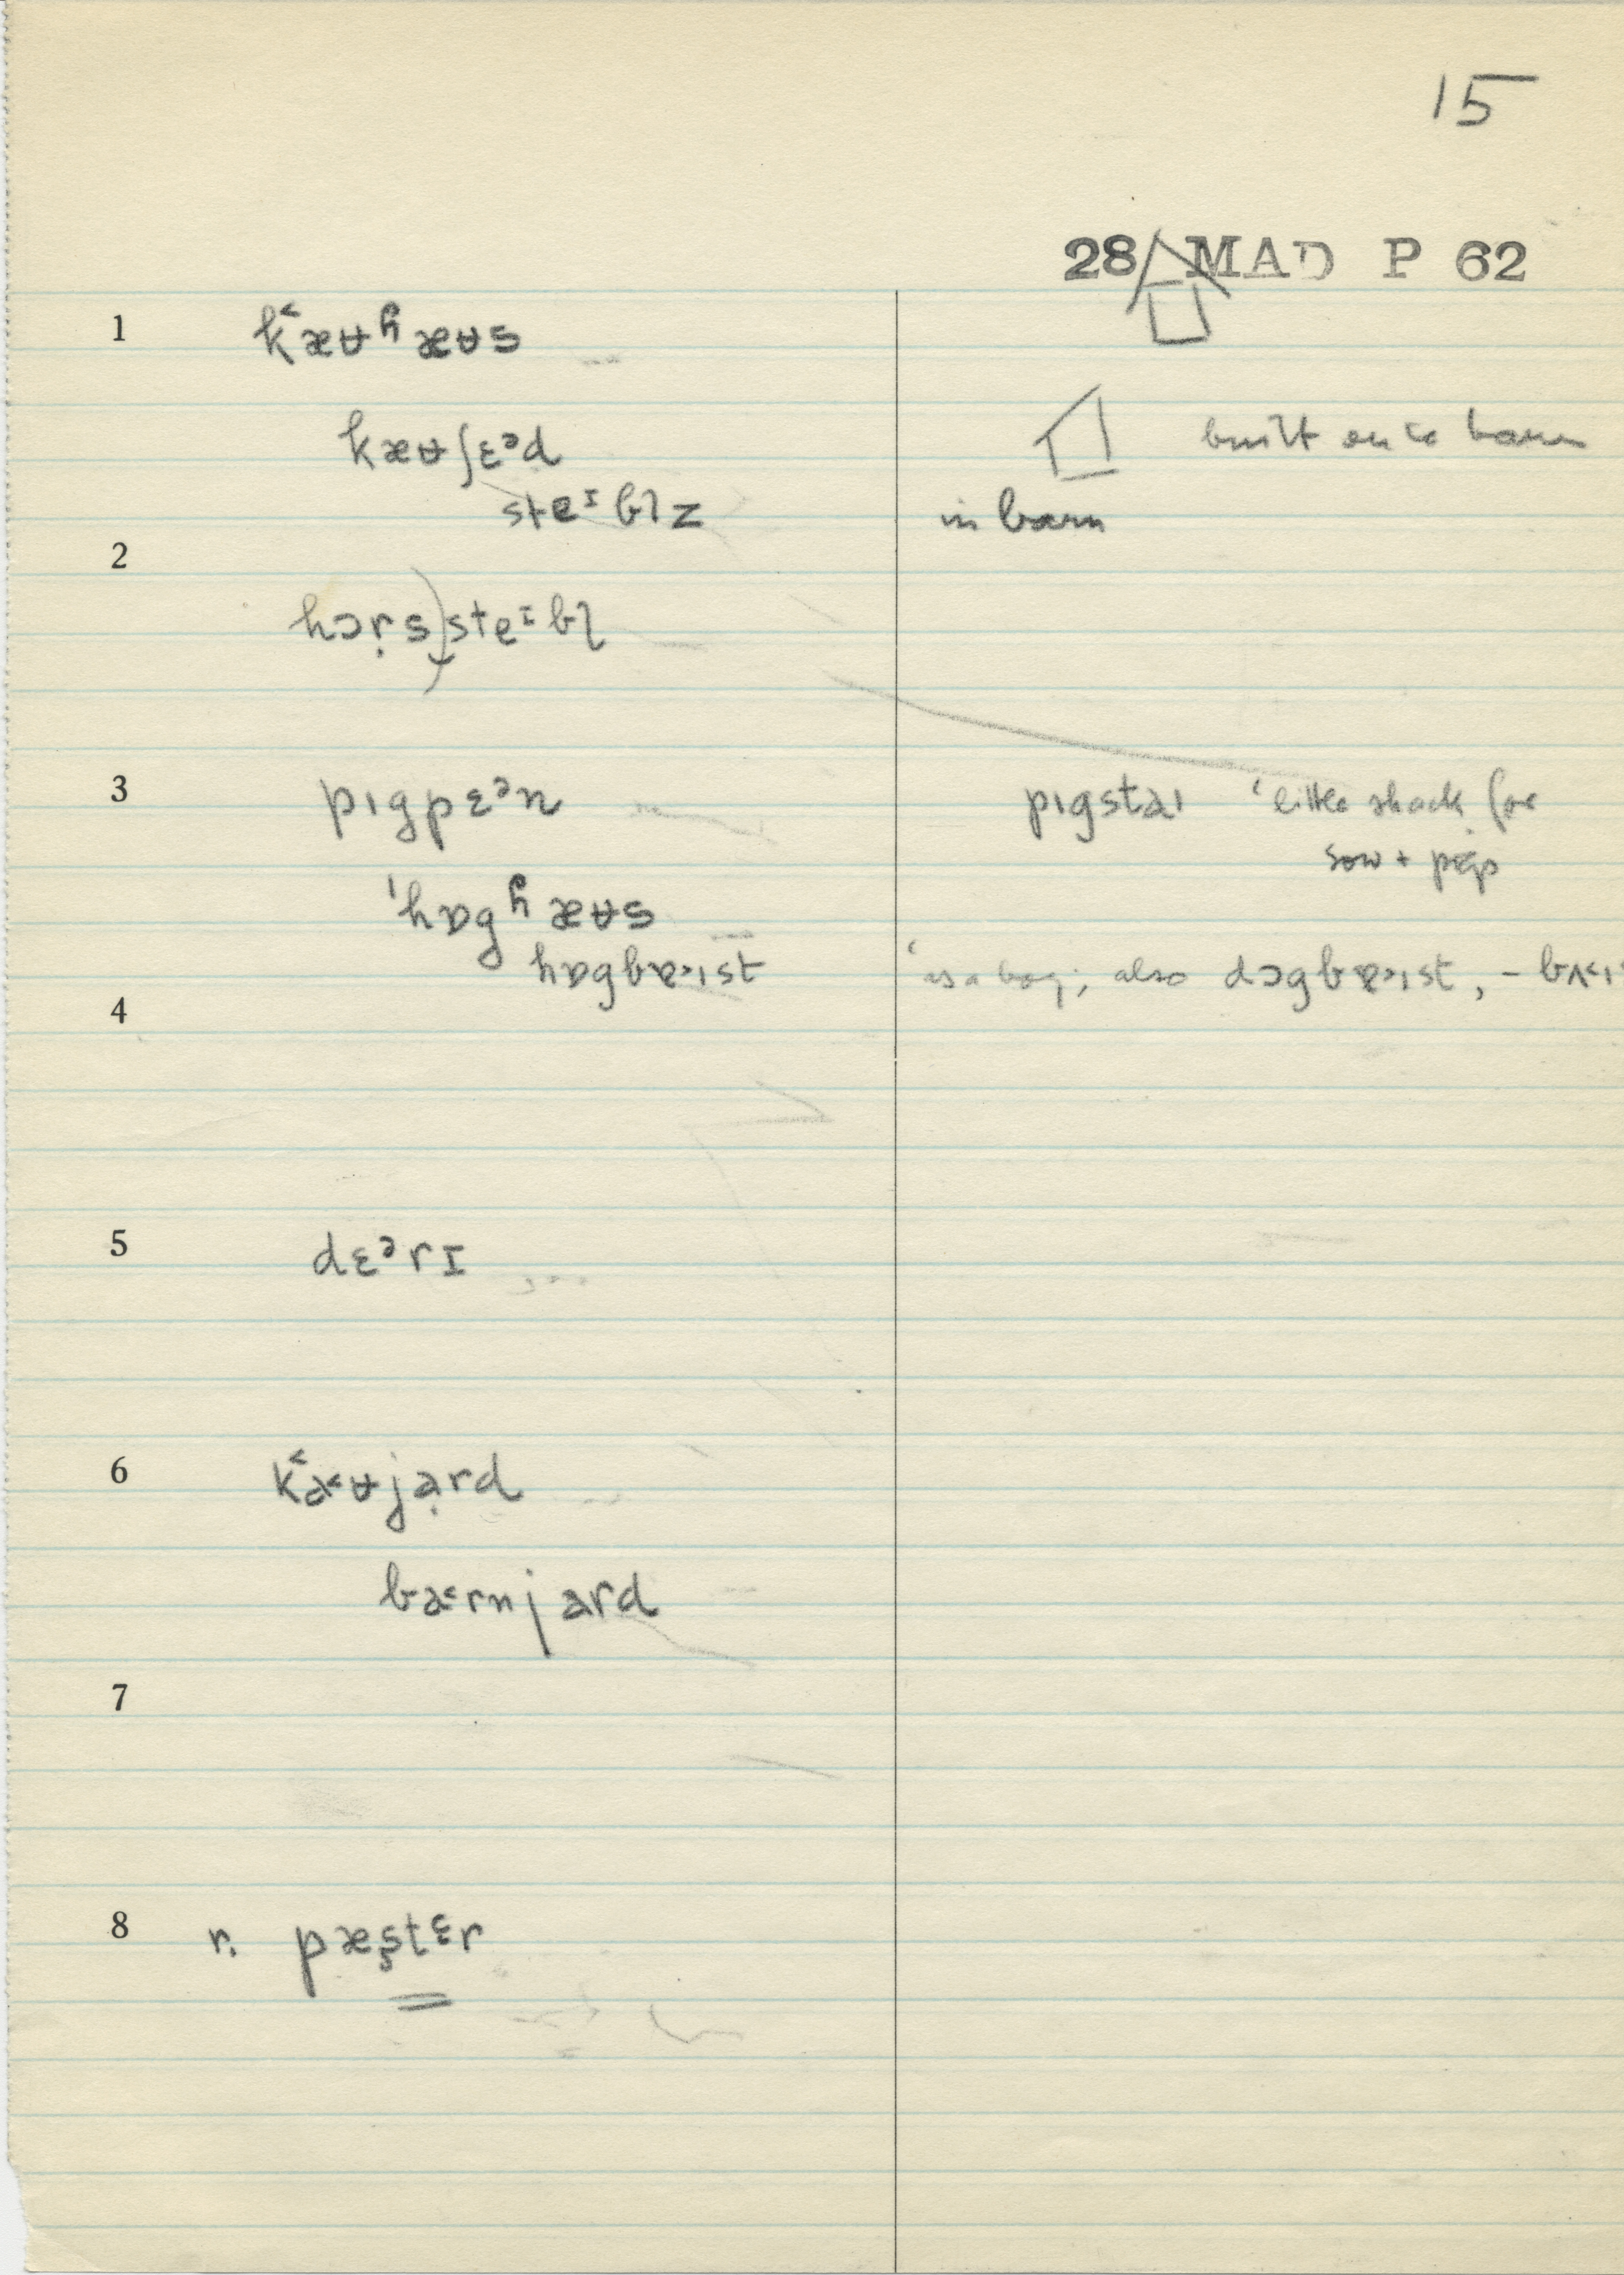 15
28 MAD P 62
1 k˂æʉɦæʉs
kæʉʃɛᵊd built on to barn
steᴵbl̩z in barn
2
hɔṛs)steᴵbl̩
3 pɪgpɛᵊn pɪgstaɪ ‘little shack for
sow + pigs
ˈhɒgɦæʉs
hɒgbɒ˃ɪst ‘as a boy; also dɔgbɒ˃ɪst, – bʌ˂ɪ
4
5 dɛᵊrɪ
6 k˂a˂ʉjạrd
ba˂rnjard
7
8 r. pæṣtɛr